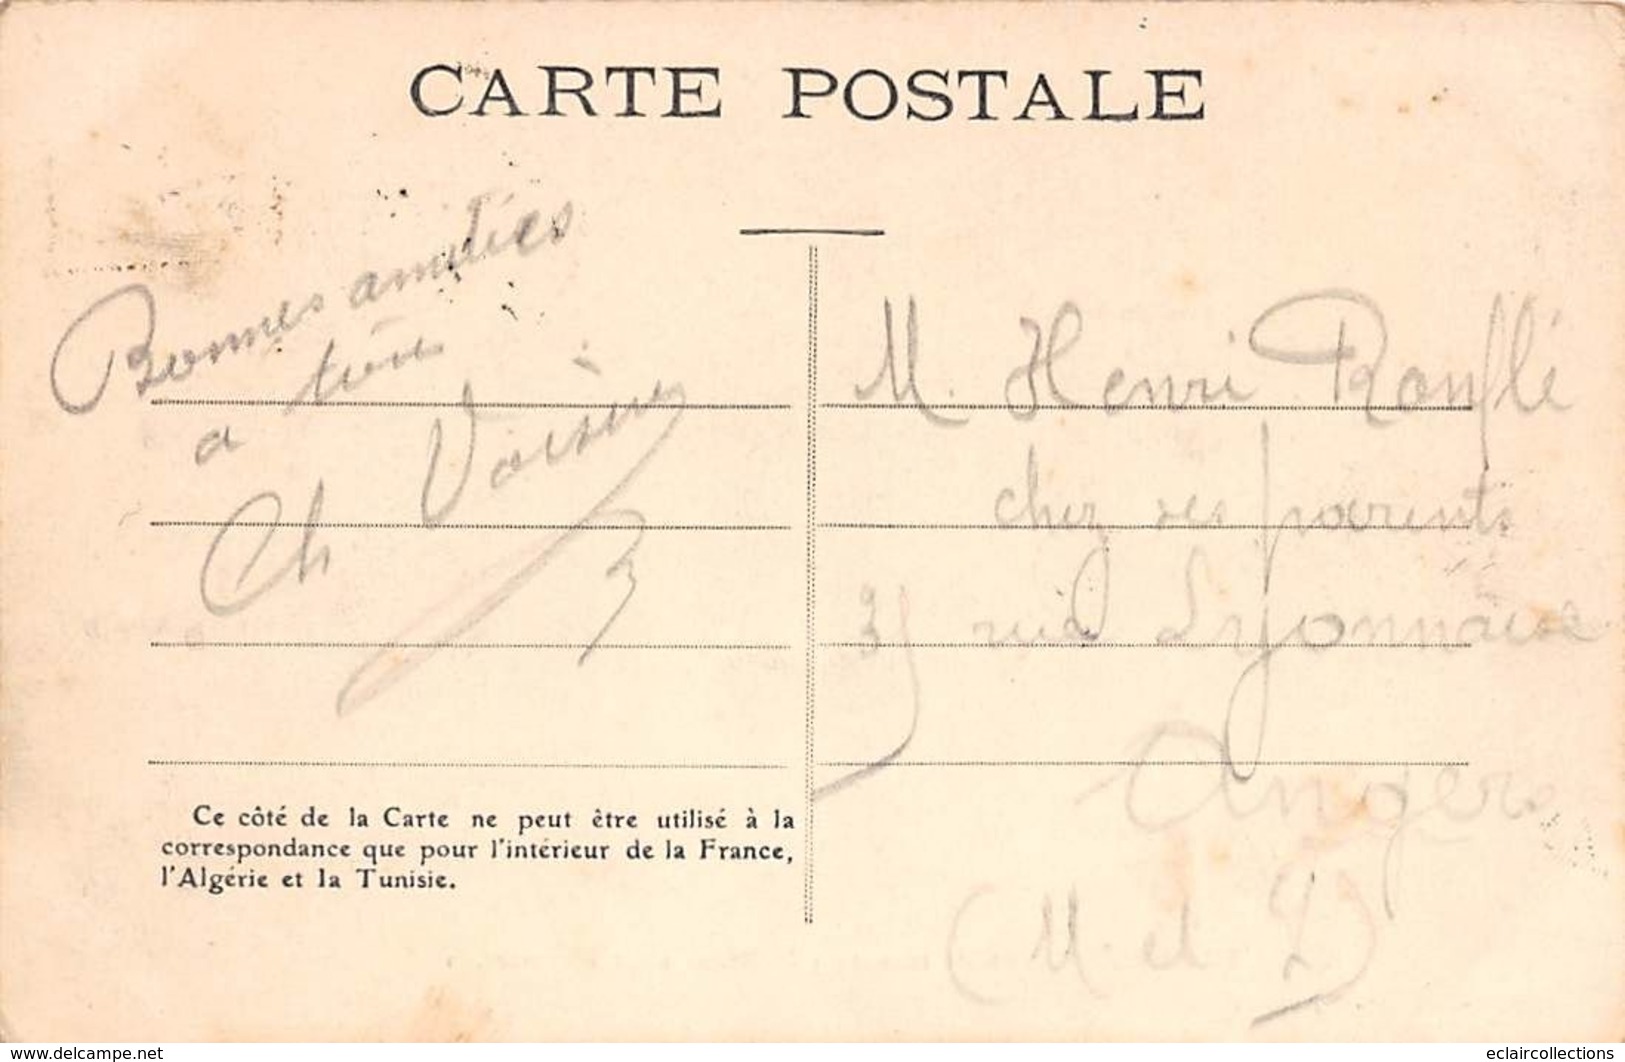 CARTE POSTALE
Bonnes amitiés
a tous
Ch Voisin
M. Henri Rouflé
chez ses parents
rue Lyonnaise
Angers
(M. et L)
Ce côté de la Carte ne peut être utilisé à la
correspondance que pour l'intérieur de la France,
l'Algérie et la Tunisie.
www.delcampe.net
eclaircollections